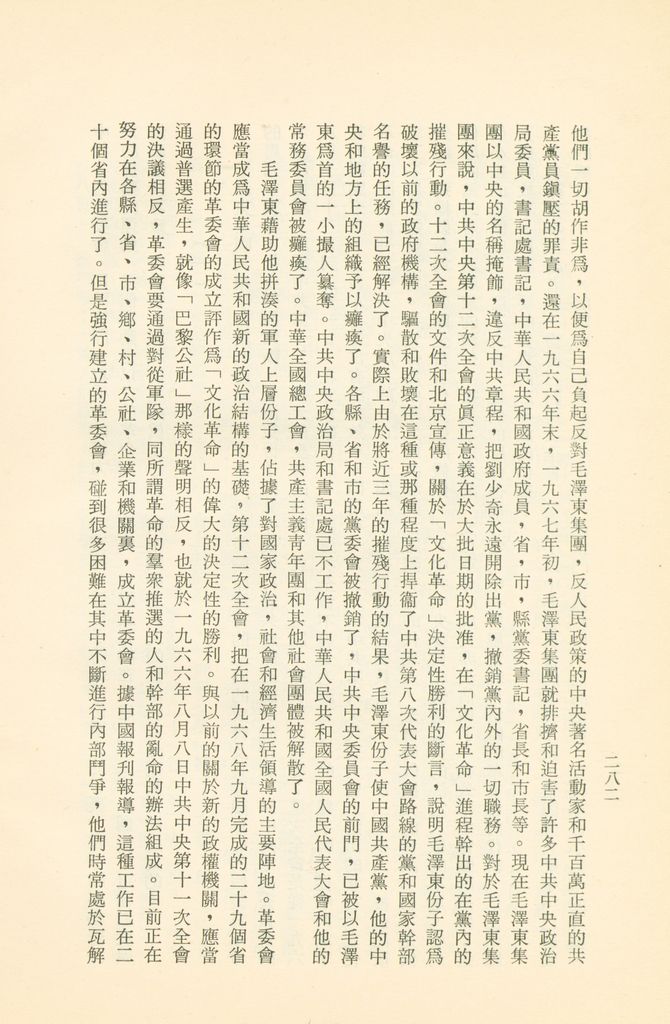 二八二
他們一切胡作非爲，以便爲自己負起反對毛澤東集團，反人民政策的中央著名活動家和千百萬正直的共
產黨員鎭壓的罪責。還在一九六六年末，一九六七年初，毛澤東集團就排擠和迫害了許多中共中央政治
局委員，書記處書記，中華人民共和國政府成員，省，市，縣黨委書記，省長和市長等。現在毛澤東集
團以中央的名稱掩飾，違反中共章程，把劉少奇永遠開除出黨，撤銷黨內外的一切職務。對於毛澤東集
團來說，中共中央第十二次全會的眞正意義在於大批日期的批准，在「文化革命」進程幹出的在黨內的
摧殘行動。十二次全會的文件和北京宣傳，關於「文化革命」決定性勝利的斷言，說明毛澤東份子認爲
破壞以前的政府機構，驅散和敗壞在這種或那種程度上捍衞了中共第八次代表大會路線的黨和國家幹部
名譽的任務，已經解決了。實際上由於將近三年的摧殘行動的結果，毛澤東份子使中國共產黨，他的中
央和地方上的組織予以癱瘓了。各縣、省和市的黨委會被撤銷了，中共中央委員會的前門，已被以毛澤
東爲首的一小撮人纂奪。中共中央政治局和書記處已不工作，中華人民共和國全國人民代表大會和他的
常務委員會被癱瘓了。中華全國總工會，共產主義靑年團和其他社會團體被解散了。
毛澤東藉助他拼湊的軍人上層份子，佔據了對國家政治，社會和經濟生活領導的主要陣地。革委會
應當成爲中華人民共和國新的政治結構的基礎。第十二次全會，把在一九六八年九月完成的二十九個省
的環節的革委會的成立評作爲「文化革命」的偉大的決定性的勝利。與以前的關於新的政權機關，應當
通過普選產生，就像「巴黎公社」那樣的聲明相反，也就於一九六六年八月八日中共中央第十一次全會
的決議相反，革委會要通過對從軍隊，同所謂革命的羣衆推選的人和幹部的亂命的辦法組成。目前正在
努力在各縣、省、市、鄉、村、公社、企業和機關裏，成立革委會。據中國報刊報導，這種工作已在二
十個省內進行了。但是強行建立的革委會，碰到很多困難在其中不斷進行內部鬥爭，他們時常處於瓦解